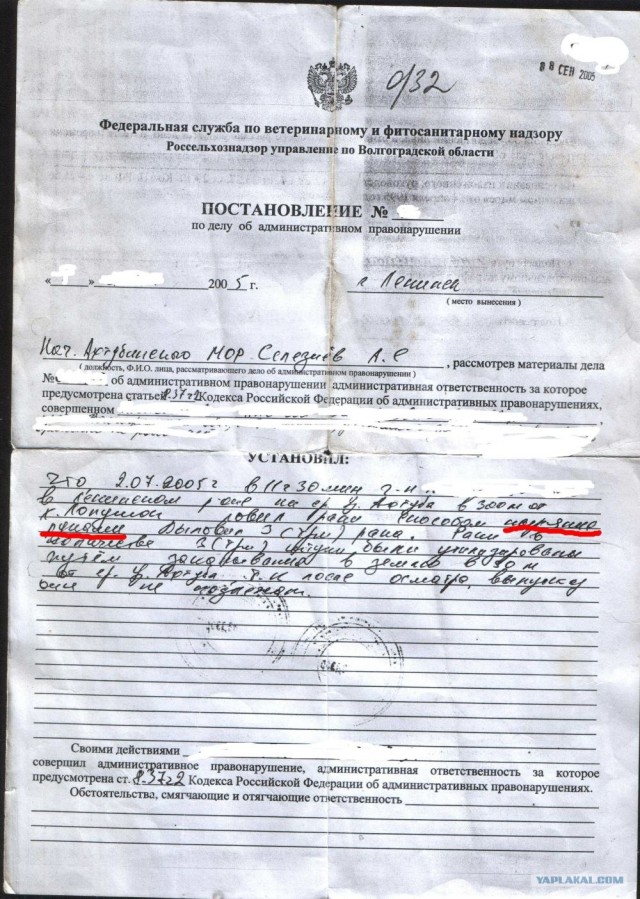 8 СЕН 2005
932
Федеральная служба по ветеринарному и фитосанитарному надзору
Россельхознадзор управление по Волгоградской области
ПОСТАНОВЛЕНИЕ №
по делу об административном правонарушении
« » 2005 г. г Ленинск
( место вынесения )
Нач. Ахтубинского МОР. Селезнёв А. С , рассмотрев материалы дела
( должность, Ф.И.О. лица, рассматривающего дело об административном правонарушении )
№ , об административном правонарушении административная ответственность за которое
предусмотрена статьей 8.37 ч 2 Кодекса Российской Федерации об административных правонарушениях,
совершенном
УСТАНОВИЛ:
что 2.07.2005 г в 11 ч 30 мин г.н.
в Ленинском р-оне на ер. Ахтуба в 300 м от
х. ловил раки способом ныряние
руками Выловил 3 (три) рака. Раки в
количестве 3 (три) штуки были утилизированы
путём закапывания в землю в м
от ер. Ахтуба. т.к после осмотра, выпуску
они не подлежат.
Своими действиями
совершил административное правонарушение, административная ответственность за которое
предусмотрена ст. 8.37 ч 2 Кодекса Российской Федерации об административных правонарушениях.
Обстоятельства, смягчающие и отягчающие ответственность
YAPLAKAL.COM